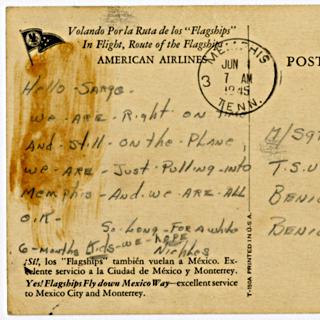 Volando Por la Ruta de los "Flagships"
In Flight, Route of the Flagships
AMERICAN AIRLINES
MEMPHIS
JUN
7 AM
3
1945
TENN.
POST
Hello Sarge-
We-Are-Right on Time
And-still-on-the-Plane,
We-Are-Just-Pulling-into
Memphis-And-we-Are-All
O.K-
So-Long-For-a while
6-months Kids-we-hope
M/Sgt
T.S.U
Benic
Benic
¡Sí!, los "Flagships" también vuelan a México. Ex-
celente servicio a la Ciudad de México y Monterrey.
Yes! Flagships Fly down Mexico Way—excellent service
to Mexico City and Monterrey.
PRINTED IN U.S.A.